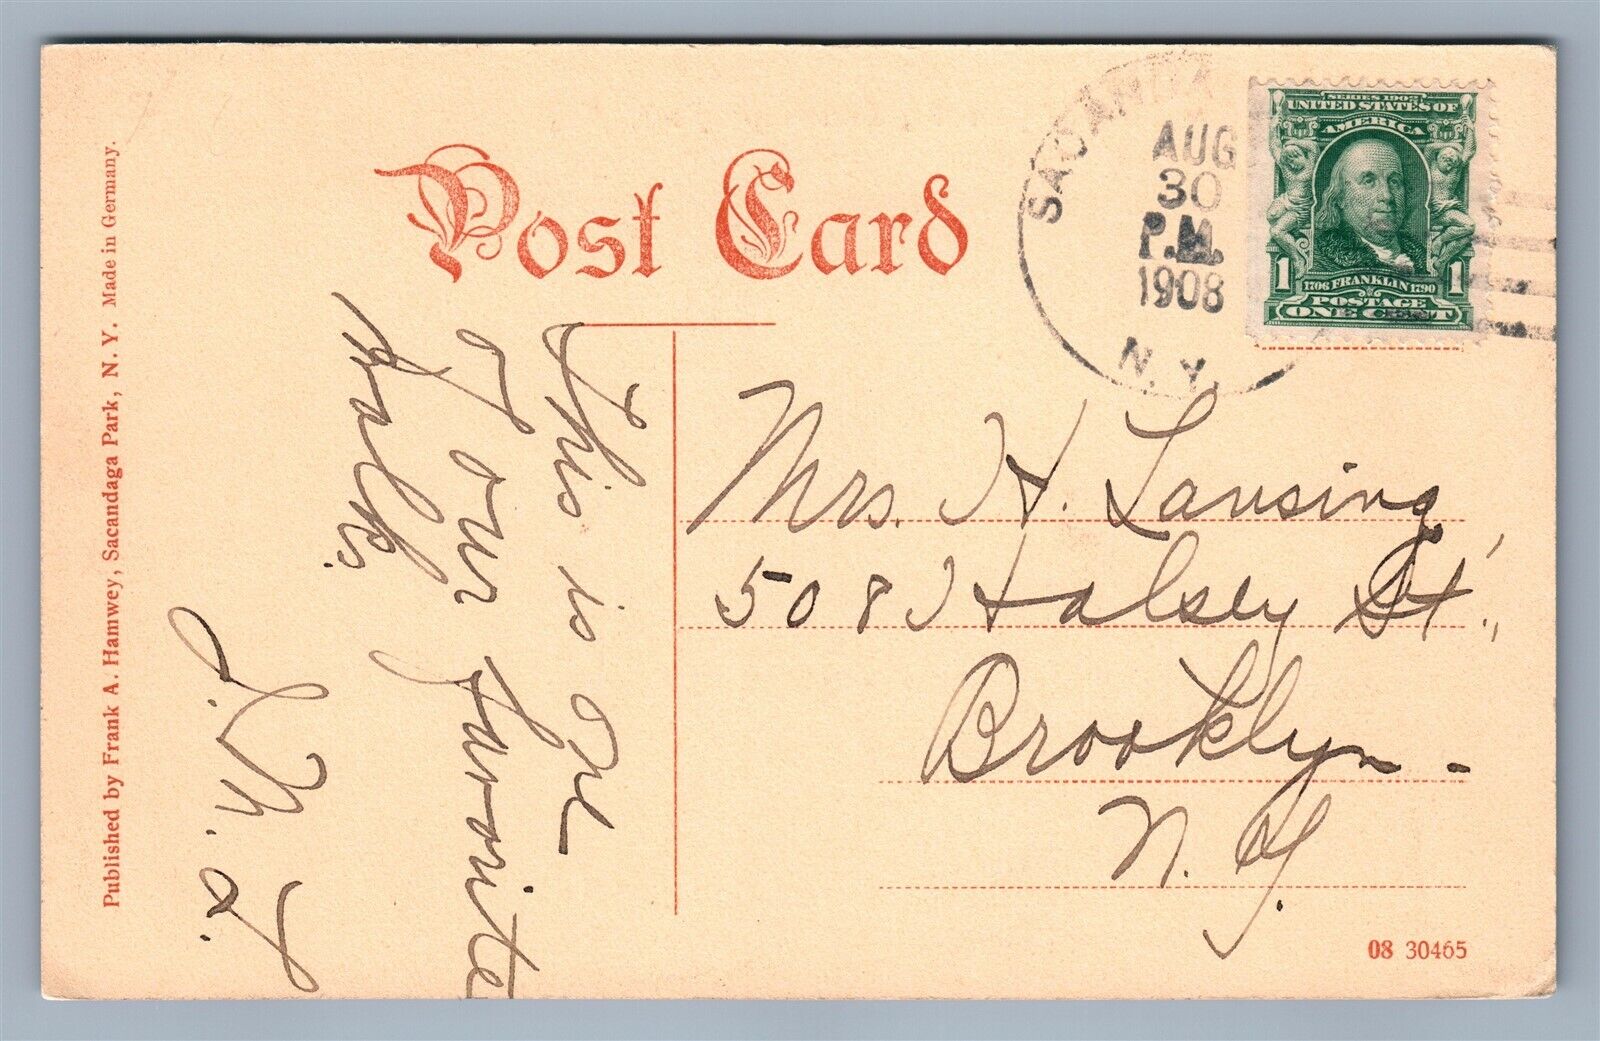 Post Card
SACANDAGA
AUG
30
P.M.
1908
N.Y.
SERIES 1902
UNITED STATES OF
AMERICA
1 1
1706 FRANKLIN 1790
POSTAGE
ONE CENT
This is one
of our favorite
walks.
Mrs. H. Lansing,
508 Halsey St.,
Brooklyn -
N. Y.
Published by Frank A. Hamwey, Sacandaga Park, N. Y. Made in Germany.
08 30465